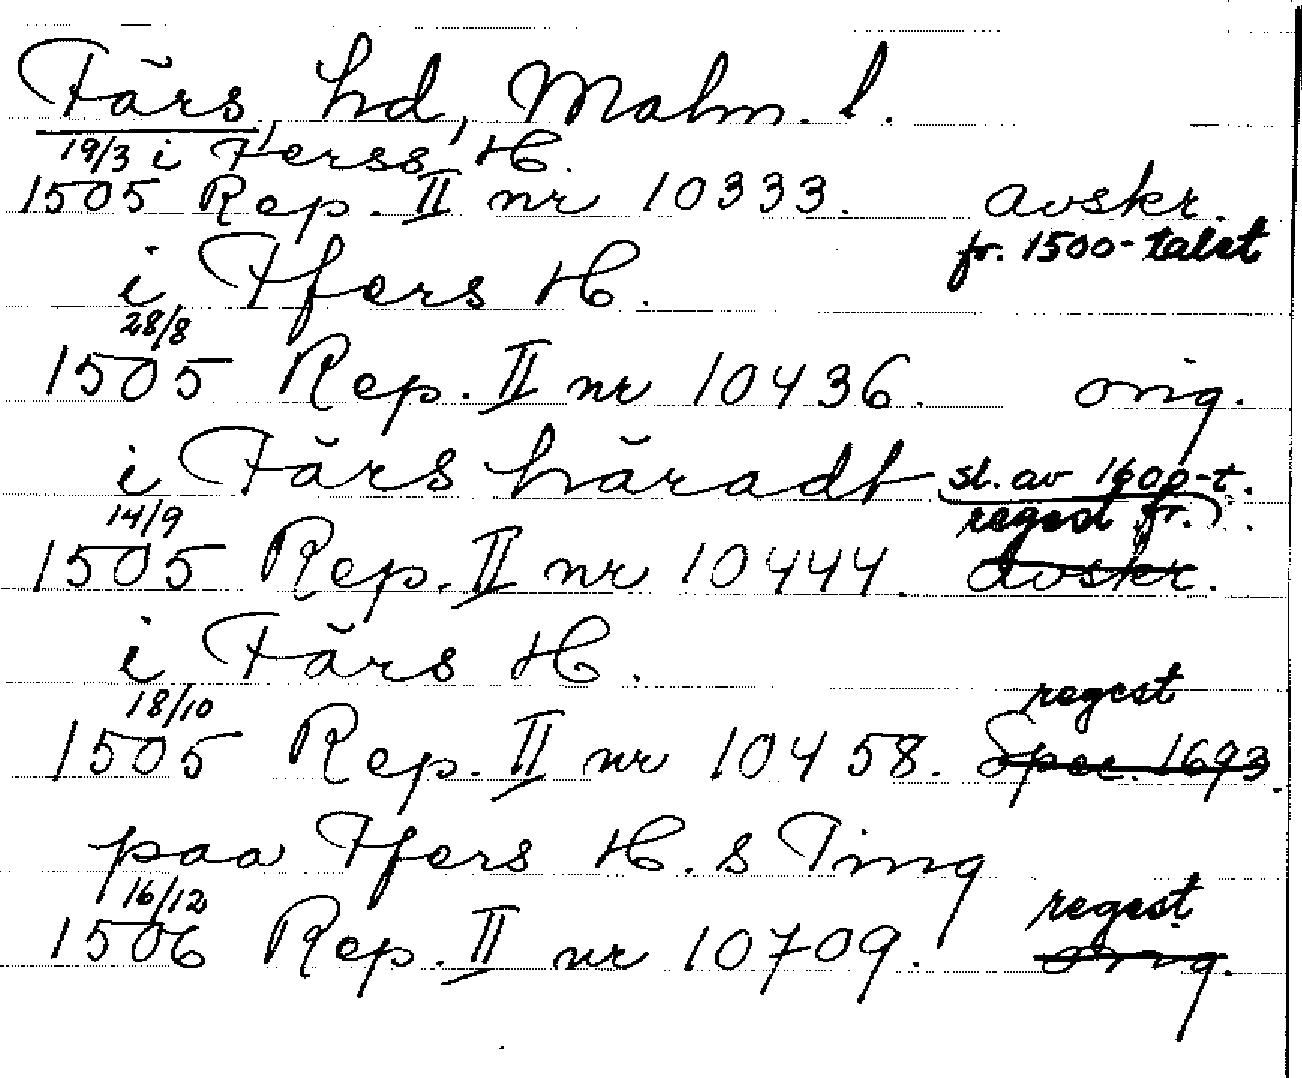 Färs hd, Malm. l.
19/3 i Ferss H.
1505 Rep. II nr 10333. avskr.
fr. 1500-talet
i Ffers H.
28/8
1505 Rep. II nr 10436. orig.
i Färs häradt sl. av 1600-t.
14/9 regest fr.
1505 Rep. II nr 10444. avskr.
i Färs H.
18/10 regest
1505 Rep. II nr 10458. Spec. 1693.
paa Ffers H.s Ting
16/12 regest
1506 Rep. II nr 10709. orig.